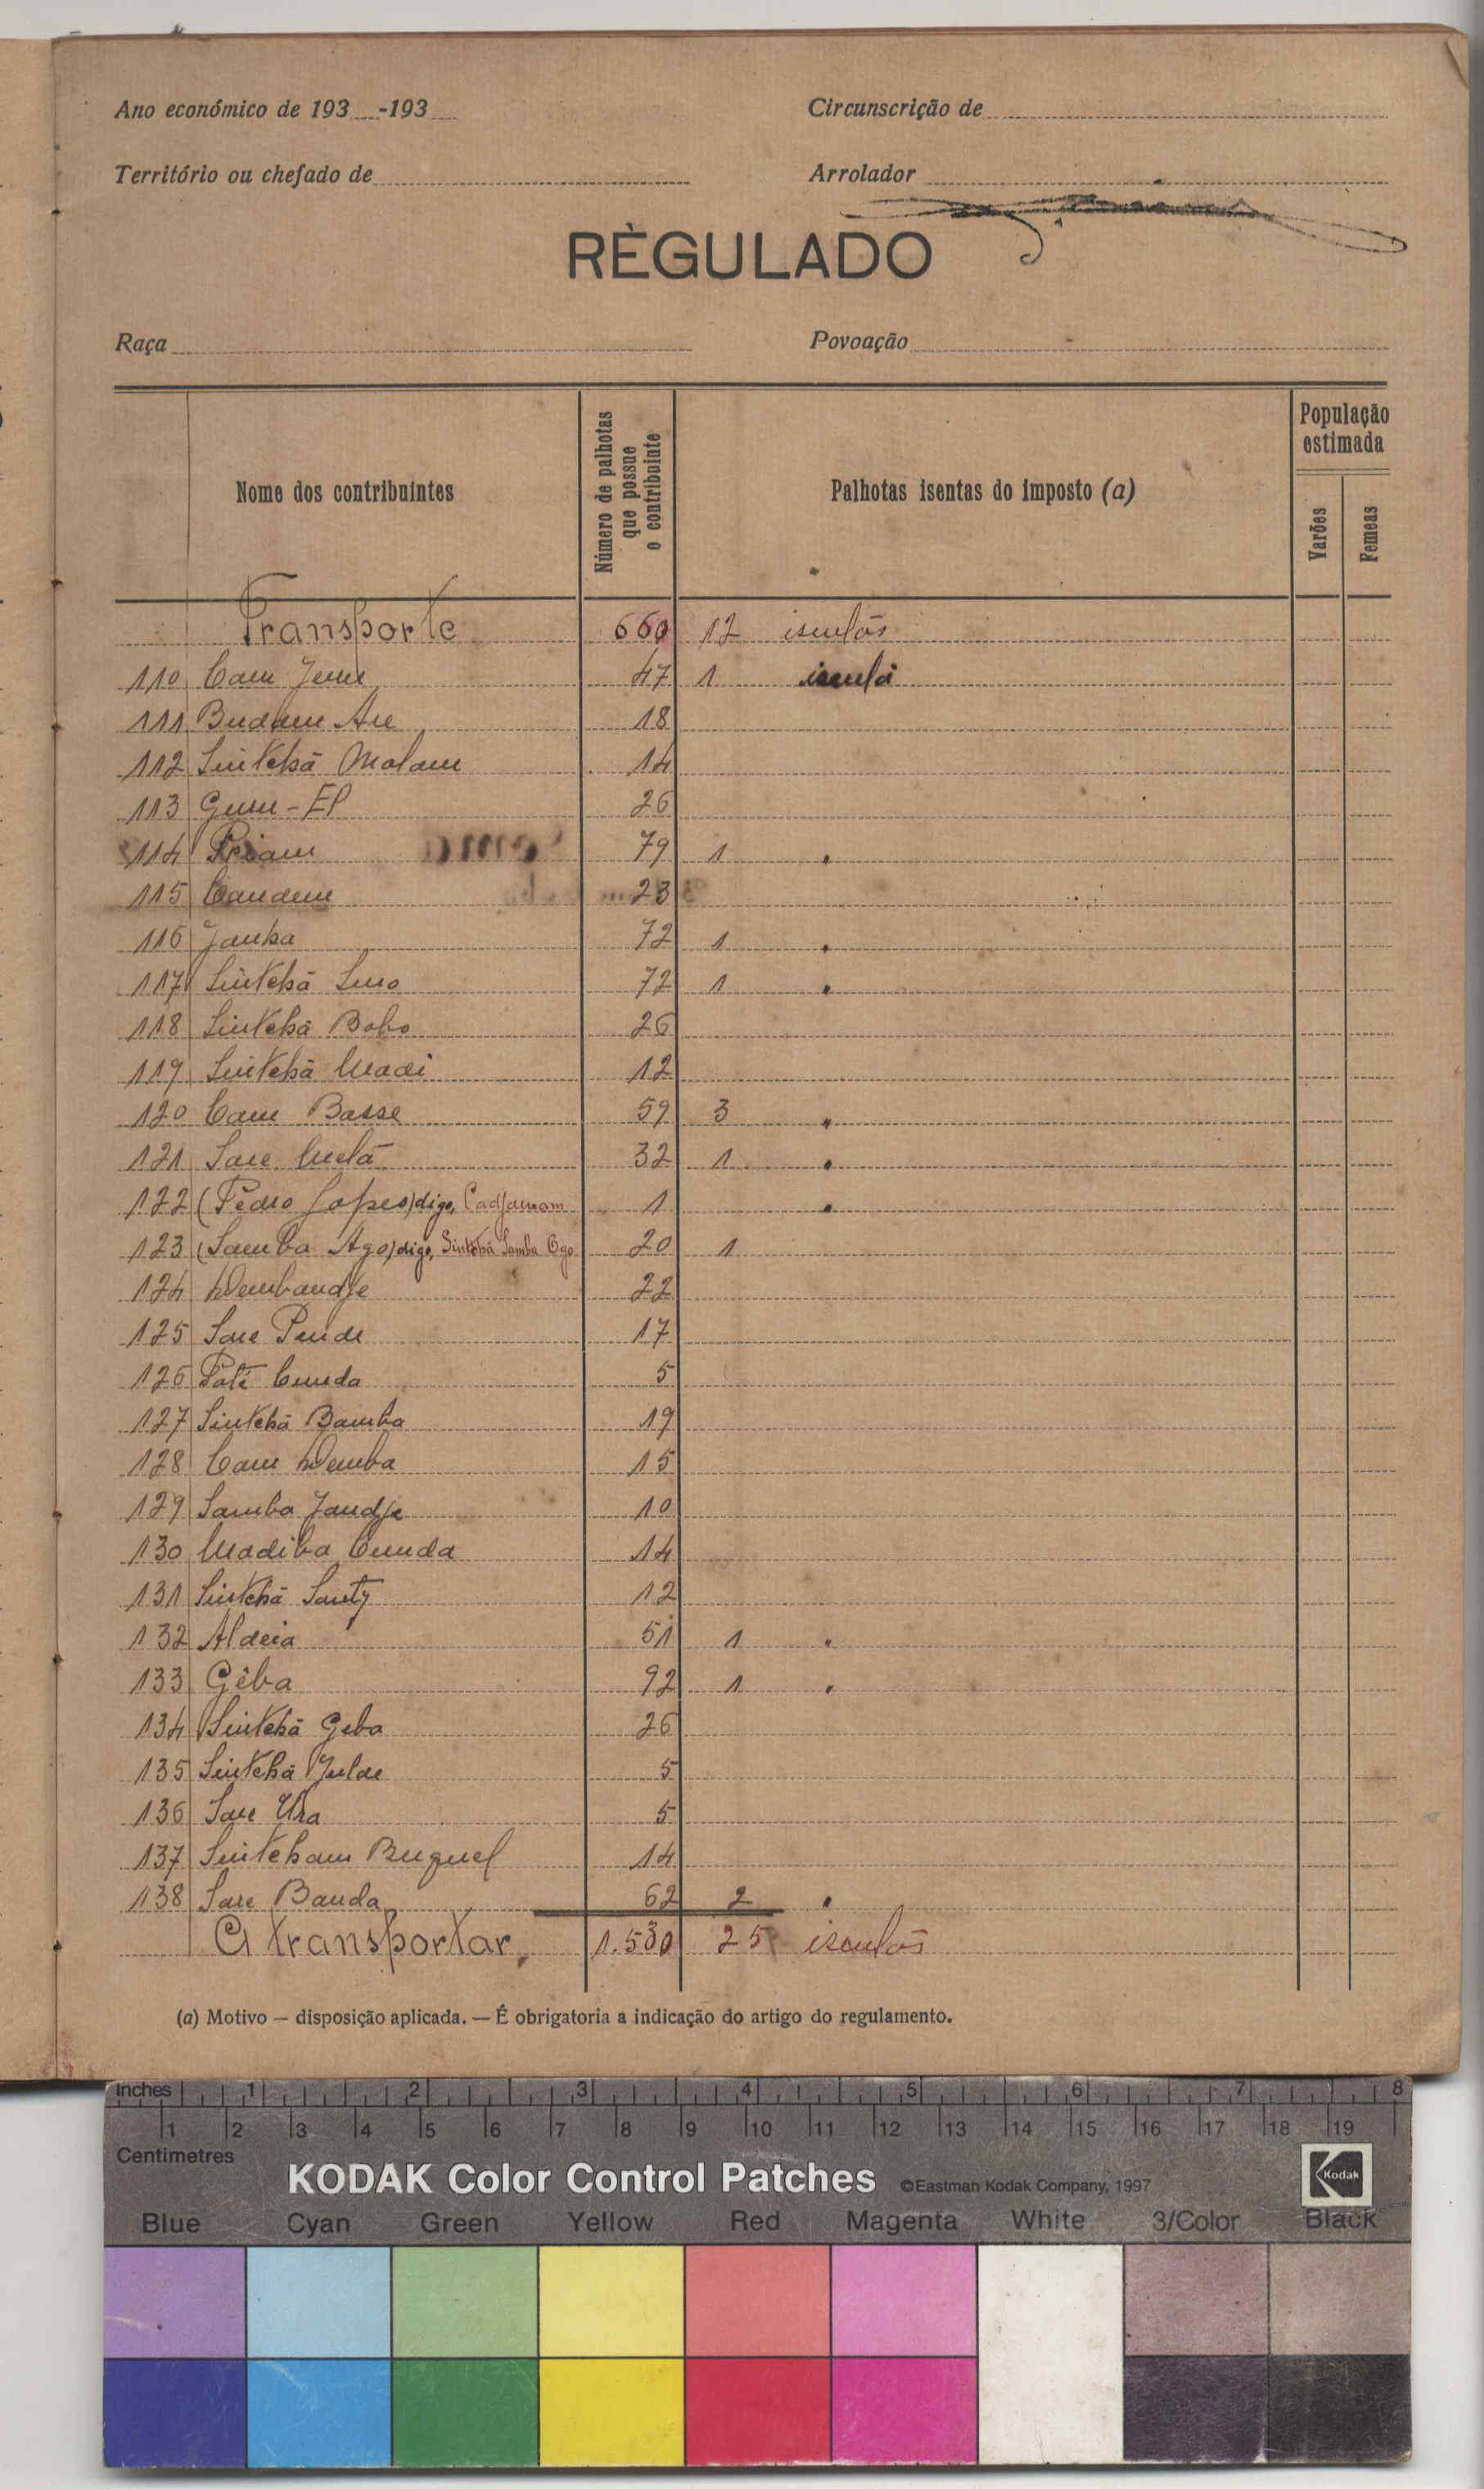 Ano económico de 193 -193
Circunscrição de
Território ou chefado de
Arrolador
RÈGULADO
Raça
Povoação
Nome dos contribuintes
Número de palhotas que possue o contribuinte
Palhotas isentas do imposto (a)
População estimada
Varões
Femeas
Transporte 660 12 isentos
110 Cam Jeme 47 1 isento
111 18
112 Sintchã Malam 14
113 26
114 79 1 "
115 23
116 Janka 72 1 "
117 Sintchã 72 1 "
118 Sintchã Bobo 26
119 Sintchã Madi 12
120 Cam Basse 59 3 "
121 Sare 32 1 "
122 (Pedro Lopes) digo, 1 "
123 (Samba Ago) digo, Sintchã Samba Ogo 20 1
124 Dembandje 22
125 Sare Pende 17
126 Paté Cunda 5
127 Sintchã Bamba 19
128 Cam Demba 15
129 Samba Jandje 10
130 Madiba Cunda 14
131 Sintchã Santy 12
132 Aldeia 51 1 "
133 Gêba 92 1 "
134 Sintchã Geba 26
135 Sintchã Julde 5
136 Sare Ura 5
137 Sintcham Buguel 14
138 Sare Banda 62 2 "
A transportar, 1.530 25 isentos
(a) Motivo — disposição aplicada. — É obrigatoria a indicação do artigo do regulamento.
Inches 1 2 3 4 5 6 7 8
1 2 3 4 5 6 7 8 9 10 11 12 13 14 15 16 17 18 19
Centimetres
KODAK Color Control Patches ©Eastman Kodak Company, 1997 Kodak
Blue Cyan Green Yellow Red Magenta White 3/Color Black